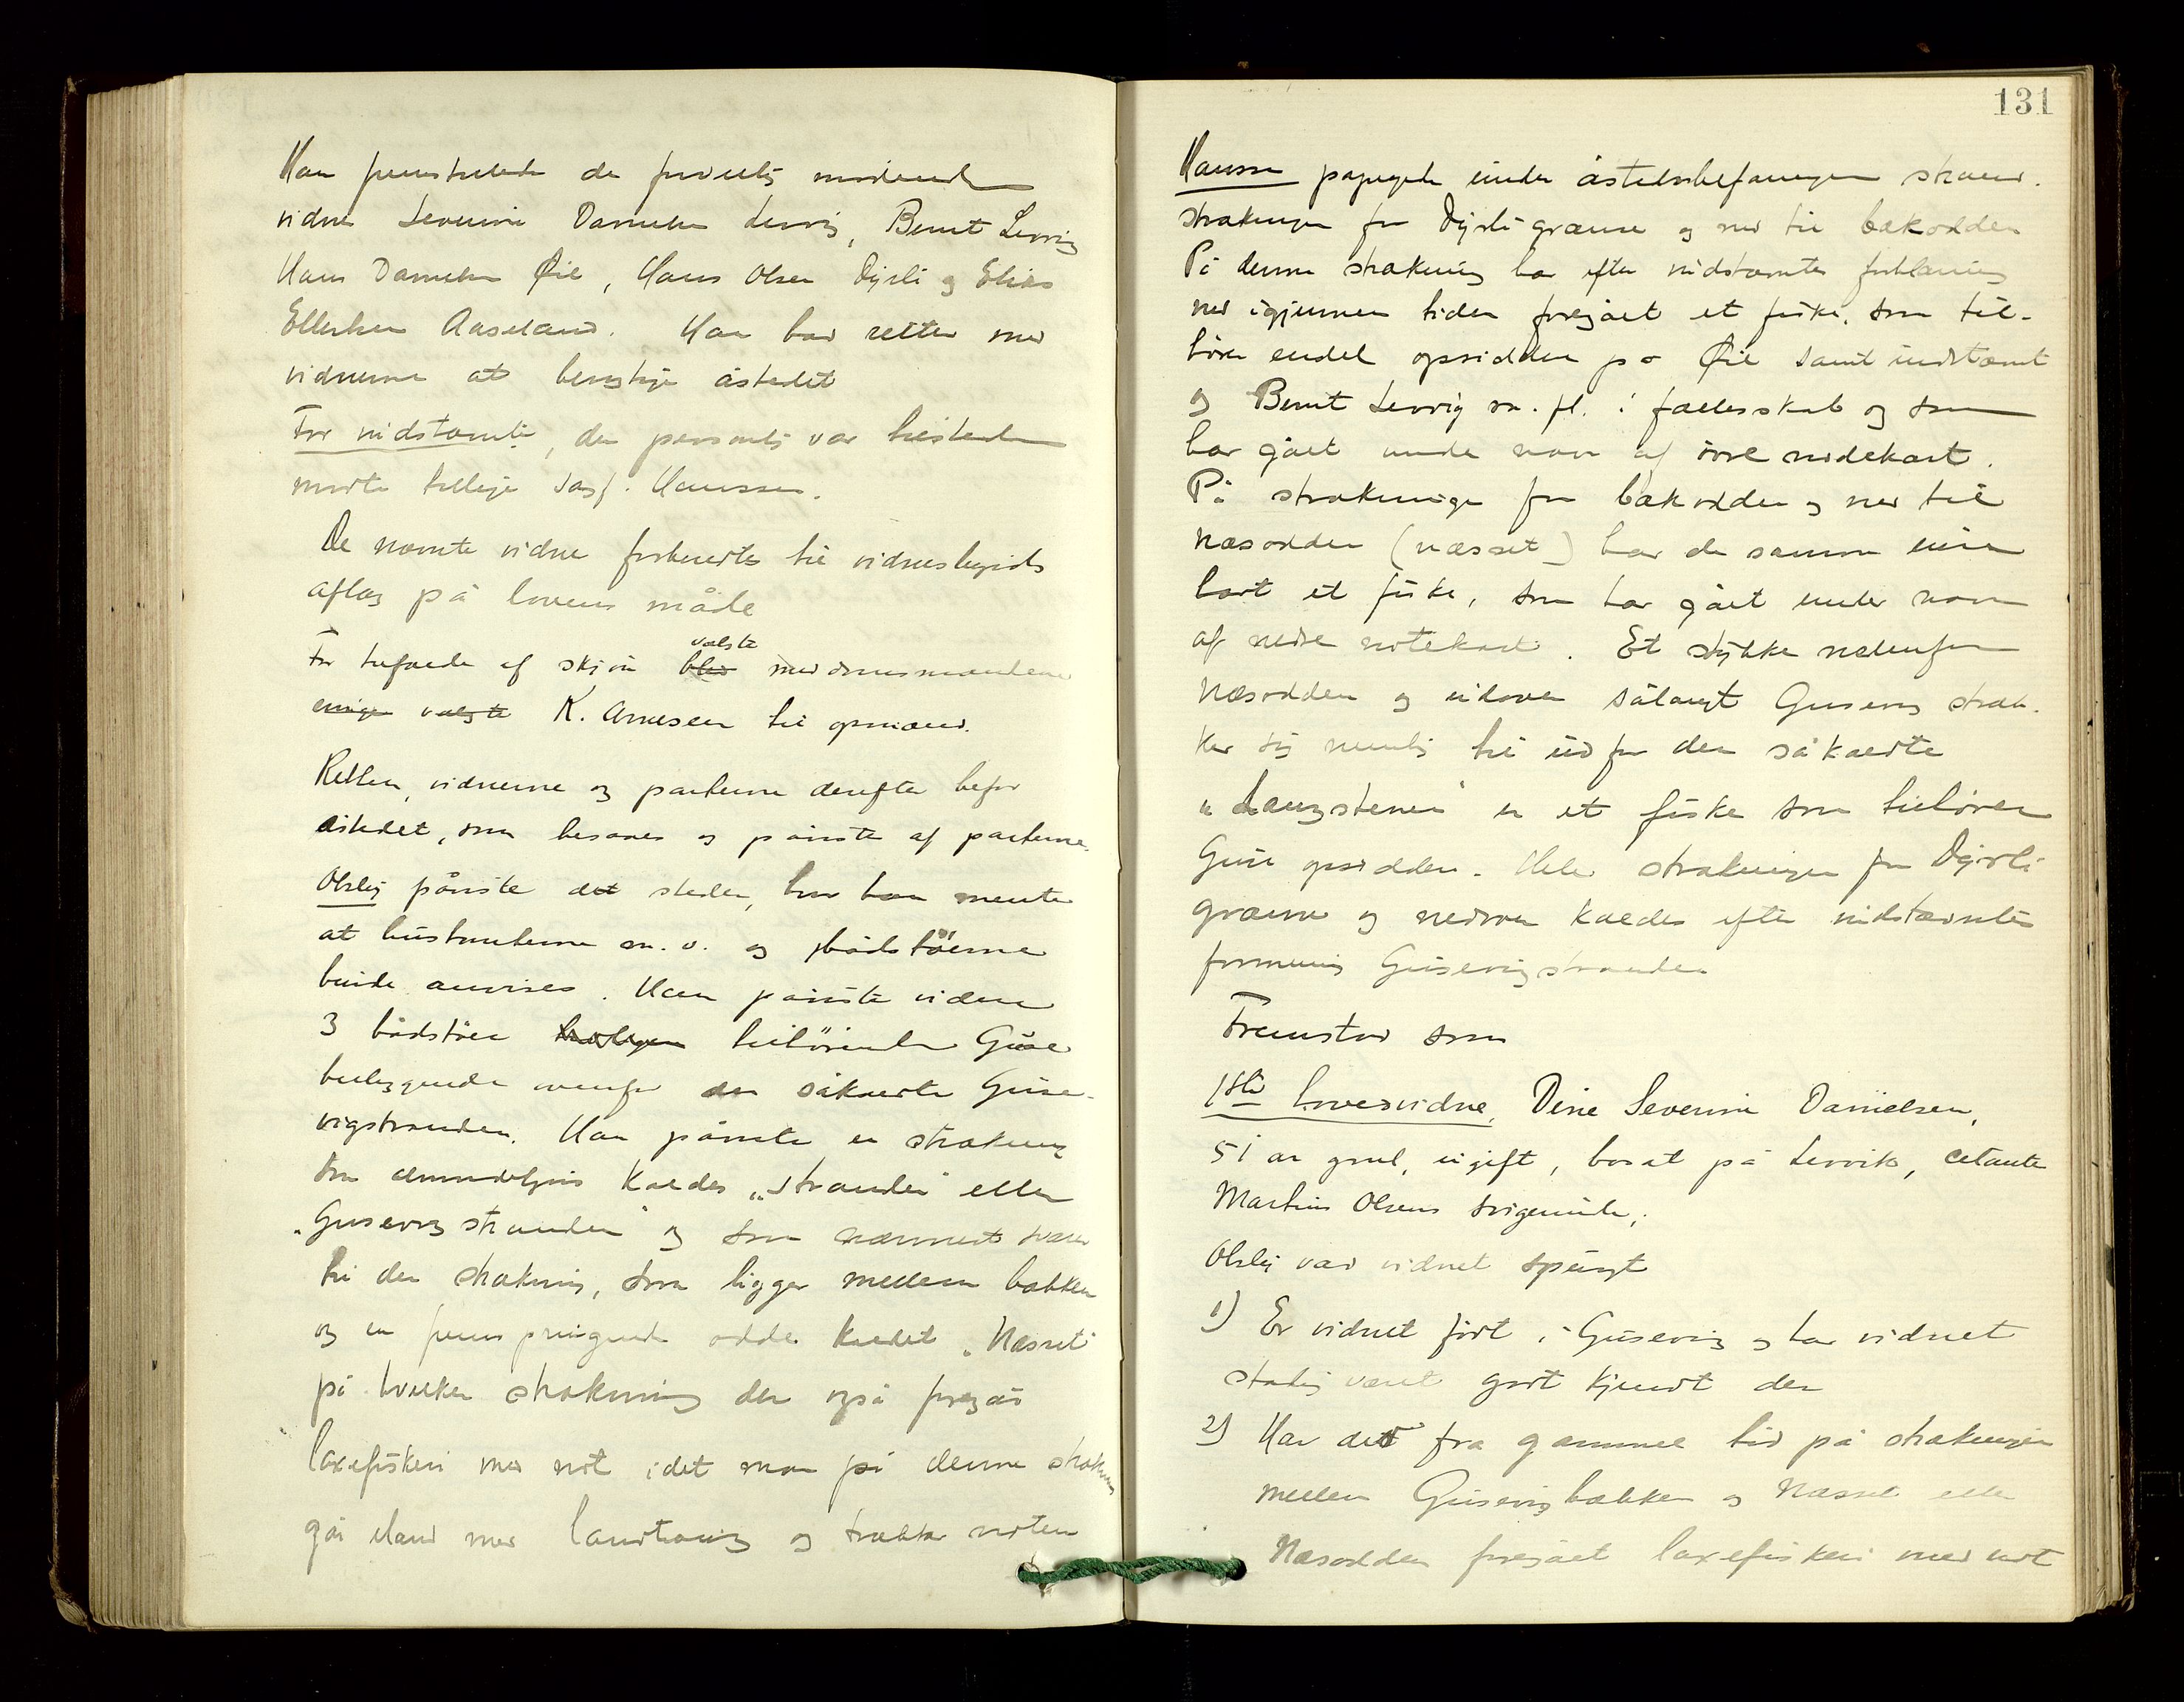 Han fremstillede de frivillig mødende
vidner Severine Danielsen Lervig, Bernt Lervig
Hans Danielsen Øie, Hans Olsen Dyrli og Elias
Ellertsen Aaseland. Han bad retten med
vidnerne at besigtige åstedet
For indstævnte, der personlig var tilstede
mødte tillige sagf. Hanssen.
De nævnte vidner forberedtes til vidnesbyrds
aflæg på lovens måde
For tilfælde af skjøn blev valgte meddomsmændene
enige valgte K. Arnesen til opmand.
Retten, vidnerne og parterne derefter befor
åstedet, som besaaes og påvistes af parterne.
Olslej påviste det steder, hvor han mente
at hustomterne m. v. og bådstöerne
burde anvises. Han påviste videre
3 bådstöer tilhörende Guse
beliggende ovenfor den såkaldte Guse-
vigstranden. Han påviste en strækning
som almindeligvis kaldes „stranden“ eller
„Gusevigstranden“ og som nærmest svarer
til den strækning, som ligger mellem bækken
og en fremspringende odde kaldet „Næsset“
på hvilken strækning der også foregår
laxefiskeri med not idet man på denne strækning
går iland med landtaug og trækker noten
131
Hanssen påpegede under åstedsbefaringen strand-
strækningen fra Dyrli grænse og ned til bækodden
På denne strækning har efter indstævntes forklaring
ned igjennem tiden foregået et fiske, som til-
hörer endel opsiddere på Øie samt indstævnte
og Bernt Lervig m. fl. i fællesskab og som
har gået under navn af övre nodekast.
På strækningen fra bækodden og ned til
næsodden (næsset) har de samme eiere
havt et fiske, som har gået under navn
af nedre notekast. Et stykke nedenfor
Næsodden og udover sålangt Gusevig stræk-
ker sig nemlig til ud for den såkaldte
„Langstenen“ er et fiske som tilhörer
Guse opsiddere. Hele strækningen fra Dyrli
grænse og nedover kaldes efter indstævntes
formening Gusevigstranden
Fremstod som
1ste hovedvidne, Dine Severine Danielsen,
51 år gml, ugift, bosat på Lervik, citantens
Martin Olsens svigerinde,
Olslej var vidnet spurgt
1) Er vidnet födt i Gusevig og har vidnet
stadig været godt kjendt der
2) Har det fra gammel tid på strækningen
mellem Gusevigbækken og Næsset eller
Næsodden foregået laxefiskeri med not